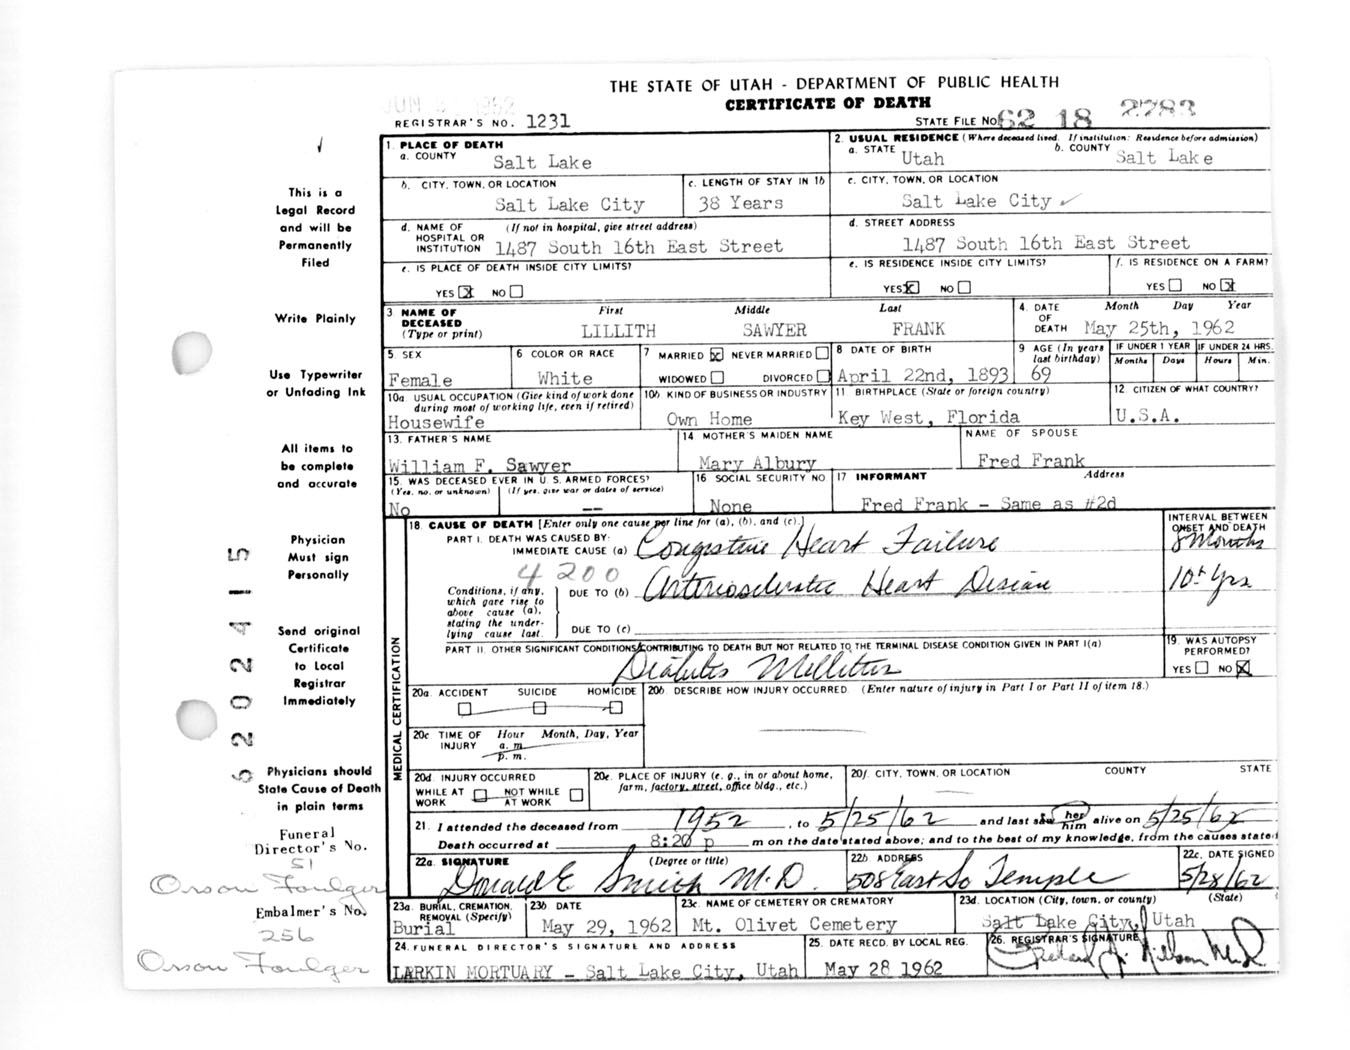 THE STATE OF UTAH - DEPARTMENT OF PUBLIC HEALTH
CERTIFICATE OF DEATH
REGISTRAR'S NO. 1231
STATE FILE NO. 62 18 2783
This is a
Legal Record
and will be
Permanently
Filed
Write Plainly
Use Typewriter
or Unfading Ink
All items to
be complete
and accurate
Physician
Must sign
Personally
Send original
Certificate
to Local
Registrar
Immediately
Physicians should
State Cause of Death
in plain terms
Funeral
Director's No.
51
Orson Foulger
Embalmer's No.
256
Orson Foulger
1. PLACE OF DEATH
a. COUNTY Salt Lake
2. USUAL RESIDENCE (Where deceased lived. If institution: Residence before admission)
a. STATE Utah b. COUNTY Salt Lake
b. CITY, TOWN, OR LOCATION Salt Lake City
c. LENGTH OF STAY IN 1b 38 Years
c. CITY, TOWN, OR LOCATION Salt Lake City
d. NAME OF HOSPITAL OR INSTITUTION (If not in hospital, give street address) 1487 South 16th East Street
d. STREET ADDRESS 1487 South 16th East Street
e. IS PLACE OF DEATH INSIDE CITY LIMITS? YES X NO
e. IS RESIDENCE INSIDE CITY LIMITS? YES X NO
f. IS RESIDENCE ON A FARM? YES NO X
3 NAME OF DECEASED (Type or print) First Middle Last
LILLITH SAWYER FRANK
4. DATE OF DEATH Month Day Year
May 25th, 1962
5 SEX Female
6 COLOR OR RACE White
7 MARRIED X NEVER MARRIED WIDOWED DIVORCED
8 DATE OF BIRTH April 22nd, 1893
9 AGE (In years last birthday) 69
IF UNDER 1 YEAR Months Days
IF UNDER 24 HRS. Hours Min.
10a. USUAL OCCUPATION (Give kind of work done during most of working life, even if retired) Housewife
10b KIND OF BUSINESS OR INDUSTRY Own Home
11 BIRTHPLACE (State or foreign country) Key West, Florida
12 CITIZEN OF WHAT COUNTRY? U.S.A.
13. FATHER'S NAME William F. Sawyer
14 MOTHER'S MAIDEN NAME Mary Albury
NAME OF SPOUSE Fred Frank
15. WAS DECEASED EVER IN U.S. ARMED FORCES? (Yes, no, or unknown) (If yes, give war or dates of service)
No --
16 SOCIAL SECURITY NO None
17 INFORMANT Address
Fred Frank - Same as #2d
18. CAUSE OF DEATH [Enter only one cause per line for (a), (b), and (c).]
INTERVAL BETWEEN ONSET AND DEATH
PART I. DEATH WAS CAUSED BY:
IMMEDIATE CAUSE (a) Congestive Heart Failure 8 Months
4200
Conditions, if any, which gave rise to above cause (a), stating the underlying cause last.
DUE TO (b) Arteriosclerotic Heart Disease 10+ Yrs
DUE TO (c)
PART II. OTHER SIGNIFICANT CONDITIONS CONTRIBUTING TO DEATH BUT NOT RELATED TO THE TERMINAL DISEASE CONDITION GIVEN IN PART I(a)
Diabetes Mellitus
19. WAS AUTOPSY PERFORMED? YES NO X
MEDICAL CERTIFICATION
20a. ACCIDENT SUICIDE HOMICIDE
20b. DESCRIBE HOW INJURY OCCURRED. (Enter nature of injury in Part I or Part II of item 18.)
20c TIME OF INJURY Hour Month, Day, Year
a. m.
p. m.
20d. INJURY OCCURRED
WHILE AT WORK NOT WHILE AT WORK
20e. PLACE OF INJURY (e. g., in or about home, farm, factory, street, office bldg., etc.)
20f. CITY, TOWN, OR LOCATION COUNTY STATE
21. I attended the deceased from 1952, to 5/25/62 and last saw her him alive on 5/25/62
Death occurred at 8:20 p m on the date stated above; and to the best of my knowledge, from the causes stated
22a. SIGNATURE (Degree or title) Donald E Smith M.D.
22b. ADDRESS 508 East So Temple
22c. DATE SIGNED 5/28/62
23a. BURIAL, CREMATION, REMOVAL (Specify) Burial
23b. DATE May 29, 1962
23c. NAME OF CEMETERY OR CREMATORY Mt. Olivet Cemetery
23d. LOCATION (City, town, or county) (State)
Salt Lake City, Utah
24. FUNERAL DIRECTOR'S SIGNATURE AND ADDRESS
LARKIN MORTUARY - Salt Lake City, Utah
25. DATE RECD. BY LOCAL REG. May 28 1962
26. REGISTRAR'S SIGNATURE